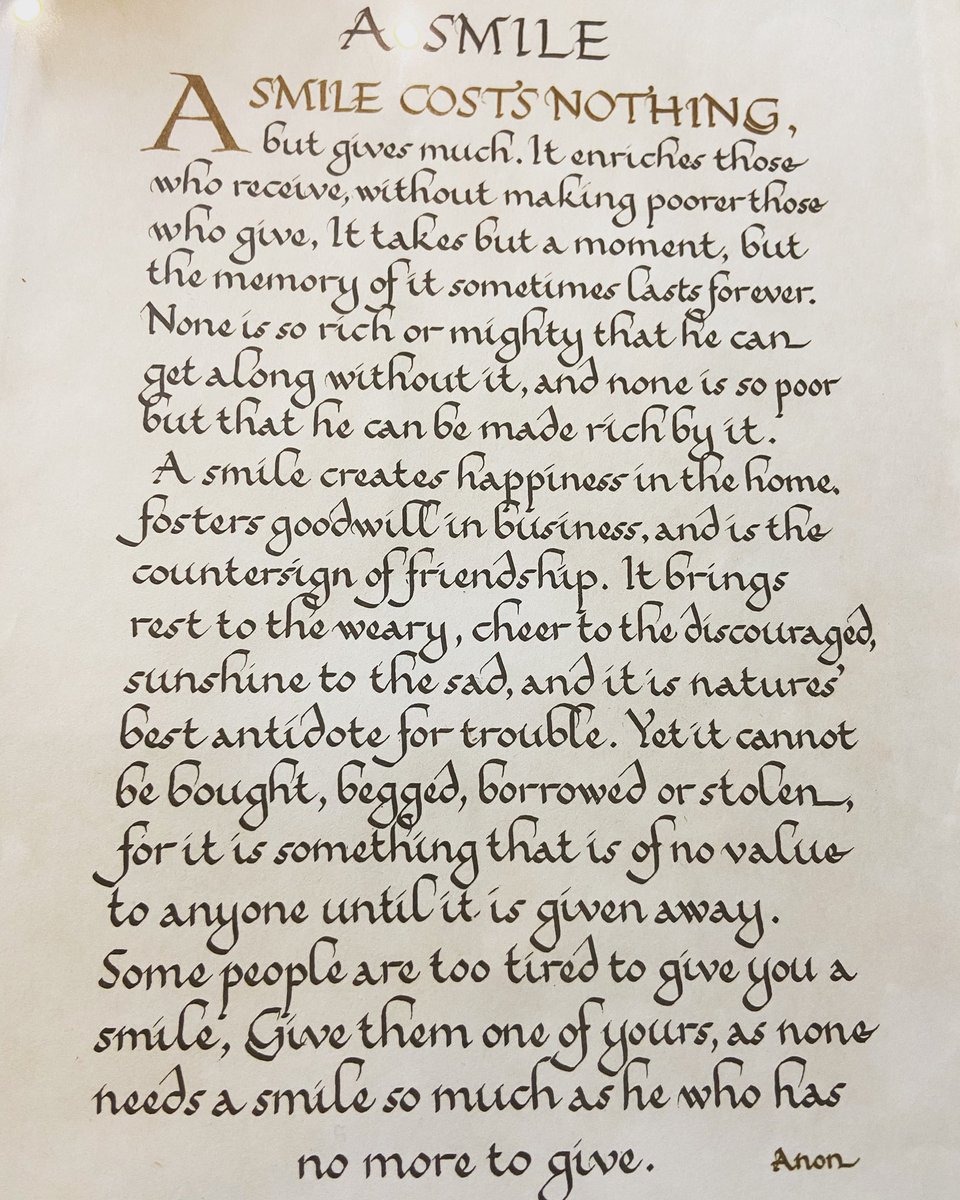 A SMILE
A SMILE COSTS NOTHING,
but gives much. It enriches those
who receive, without making poorer those
who give, It takes but a moment, but
the memory of it sometimes lasts forever.
None is so rich or mighty that he can
get along without it, and none is so poor
but that he can be made rich by it.
A smile creates happiness in the home,
fosters goodwill in business, and is the
countersign of friendship. It brings
rest to the weary, cheer to the discouraged,
sunshine to the sad, and it is natures'
best antidote for trouble. Yet it cannot
be bought, begged, borrowed or stolen,
for it is something that is of no value
to anyone until it is given away.
Some people are too tired to give you a
smile, Give them one of yours, as none
needs a smile so much as he who has
no more to give. Anon